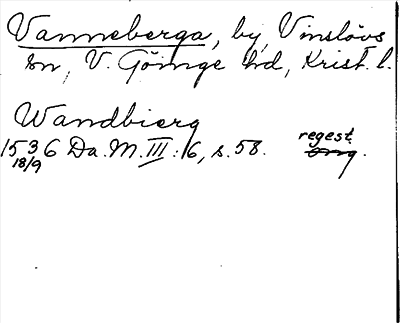 Vanneberga, by, Vinslövs
sn, V. Göinge hd, Krist. l.
Wandbierg
1536 Da. M. III: 6, s. 58. regest.
18/9 orig.